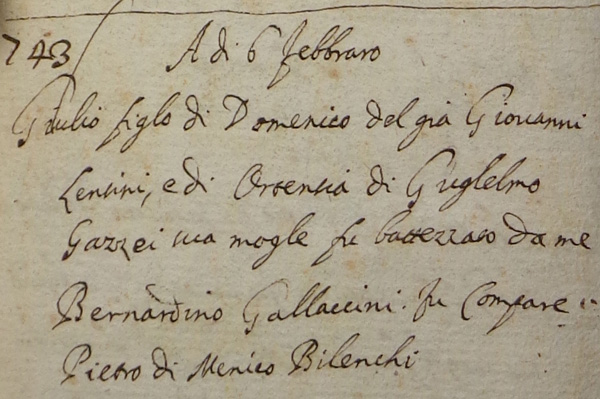 743 A di 6 febbraro
Giulio figlo di Domenico del già Giovanni
Lensini, e di Ortensia di Guglelmo
Gazzei sua mogle fu battezzato da me
Bernardino Gallaccini. fu Compare
Pietro di Menico Bilenchi